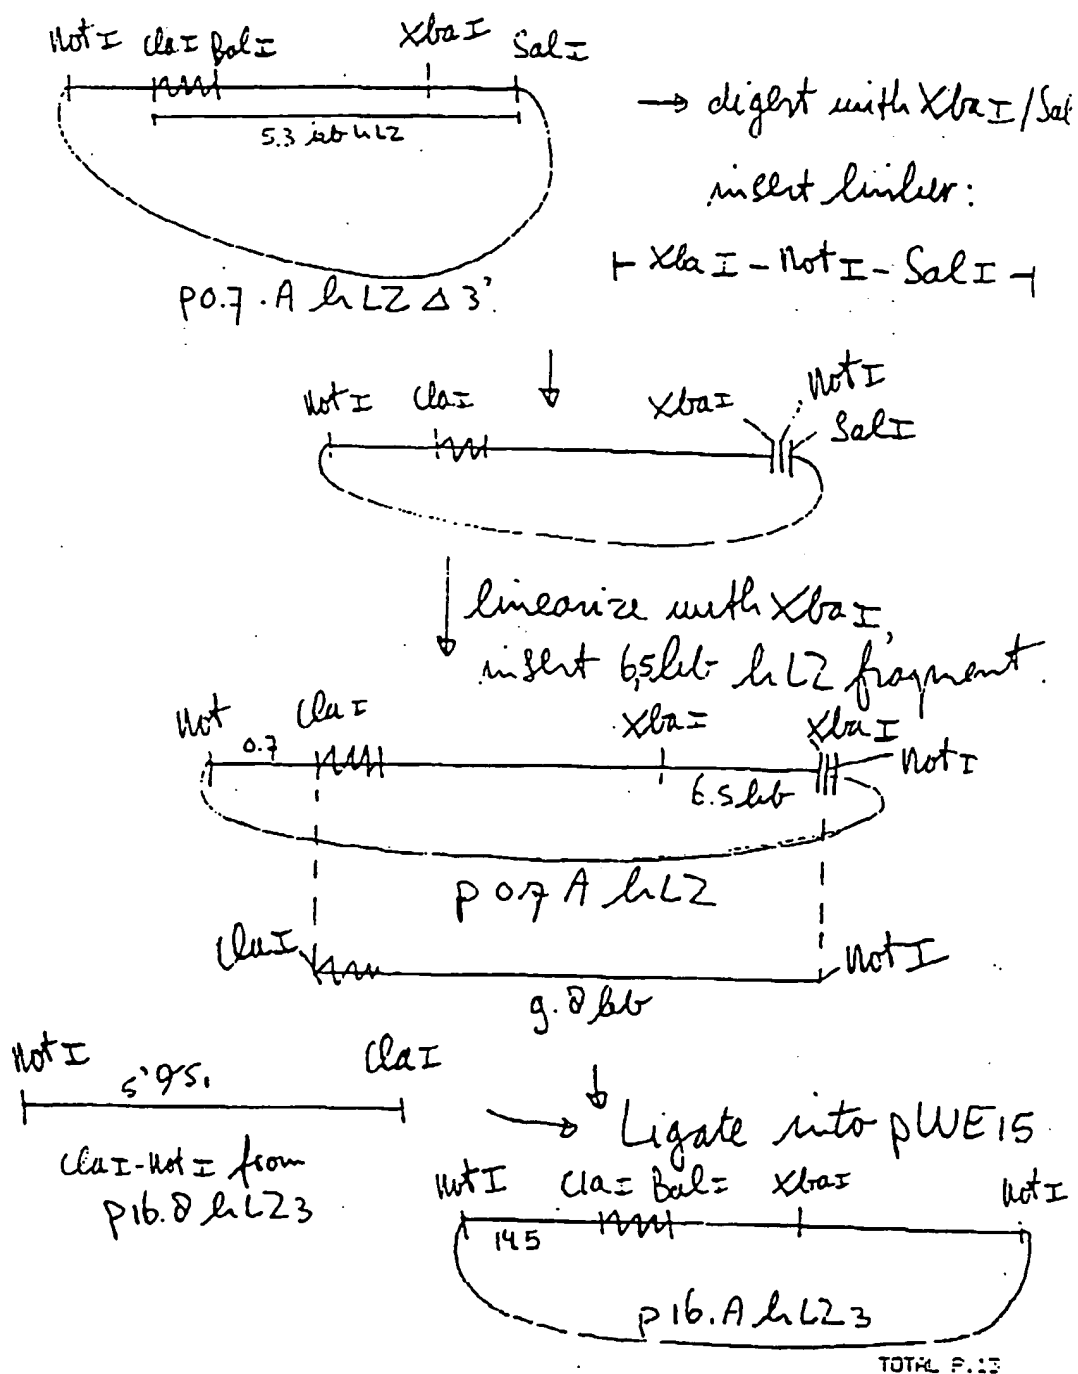 Not I ClaI BalI XbaI SalI
→ digest with XbaI/Sal
5.3 kb hLZ
insert linker:
⊢ XbaI - NotI - SalI ⊣
p0.7.A hLZ Δ 3'
NotI ClaI XbaI NotI
SalI
linearize with XbaI,
insert 6,5kb hLZ fragment.
Not ClaI XbaI XbaI
0.7 NotI
6.5 kb
p 0.7 A hLZ
ClaI NotI
9.8 kb
NotI ClaI
5'
Ligate into pWE15
ClaI-NotI from
p16.8 hLZ3
NotI ClaI BalI XbaI NotI
14.5
p16.A hLZ3
TOTAL P.13